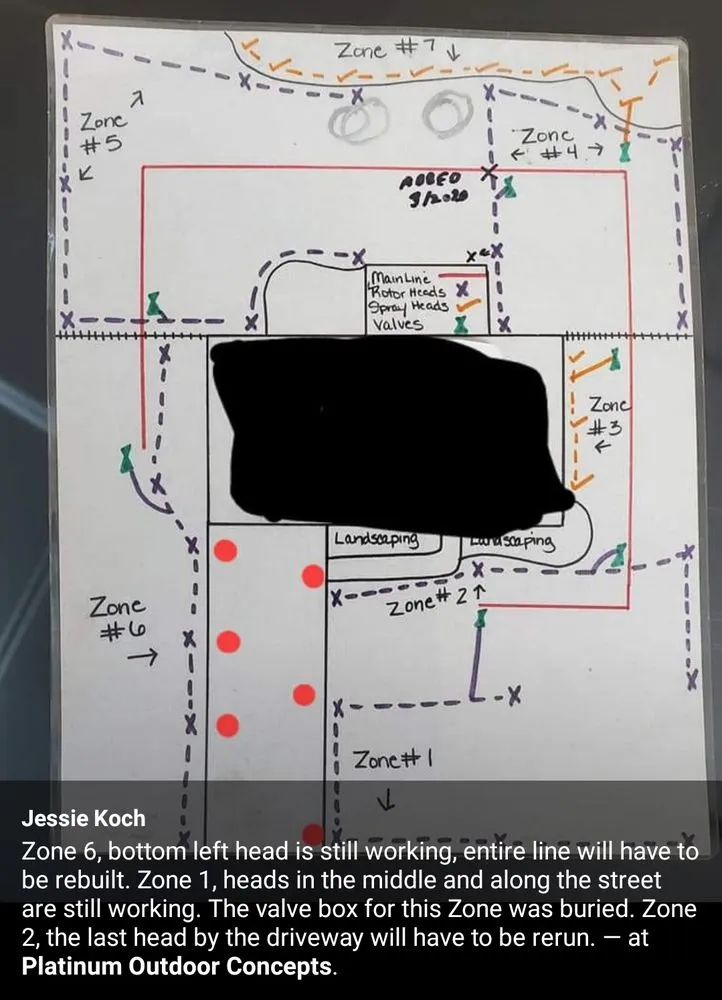 Zone #7 ↓
Zone
#5
Zone
← #4 →
ADDED
9/2020
x←
MainLine
Rotor Heads x
Spray Heads
Valves
Zone
#3
←
Landscaping
Landscaping
Zone #2↑
Zone
#6
→
Zone #1
↓
Jessie Koch
Zone 6, bottom left head is still working, entire line will have to
be rebuilt. Zone 1, heads in the middle and along the street
are still working. The valve box for this Zone was buried. Zone
2, the last head by the driveway will have to be rerun. — at
Platinum Outdoor Concepts.